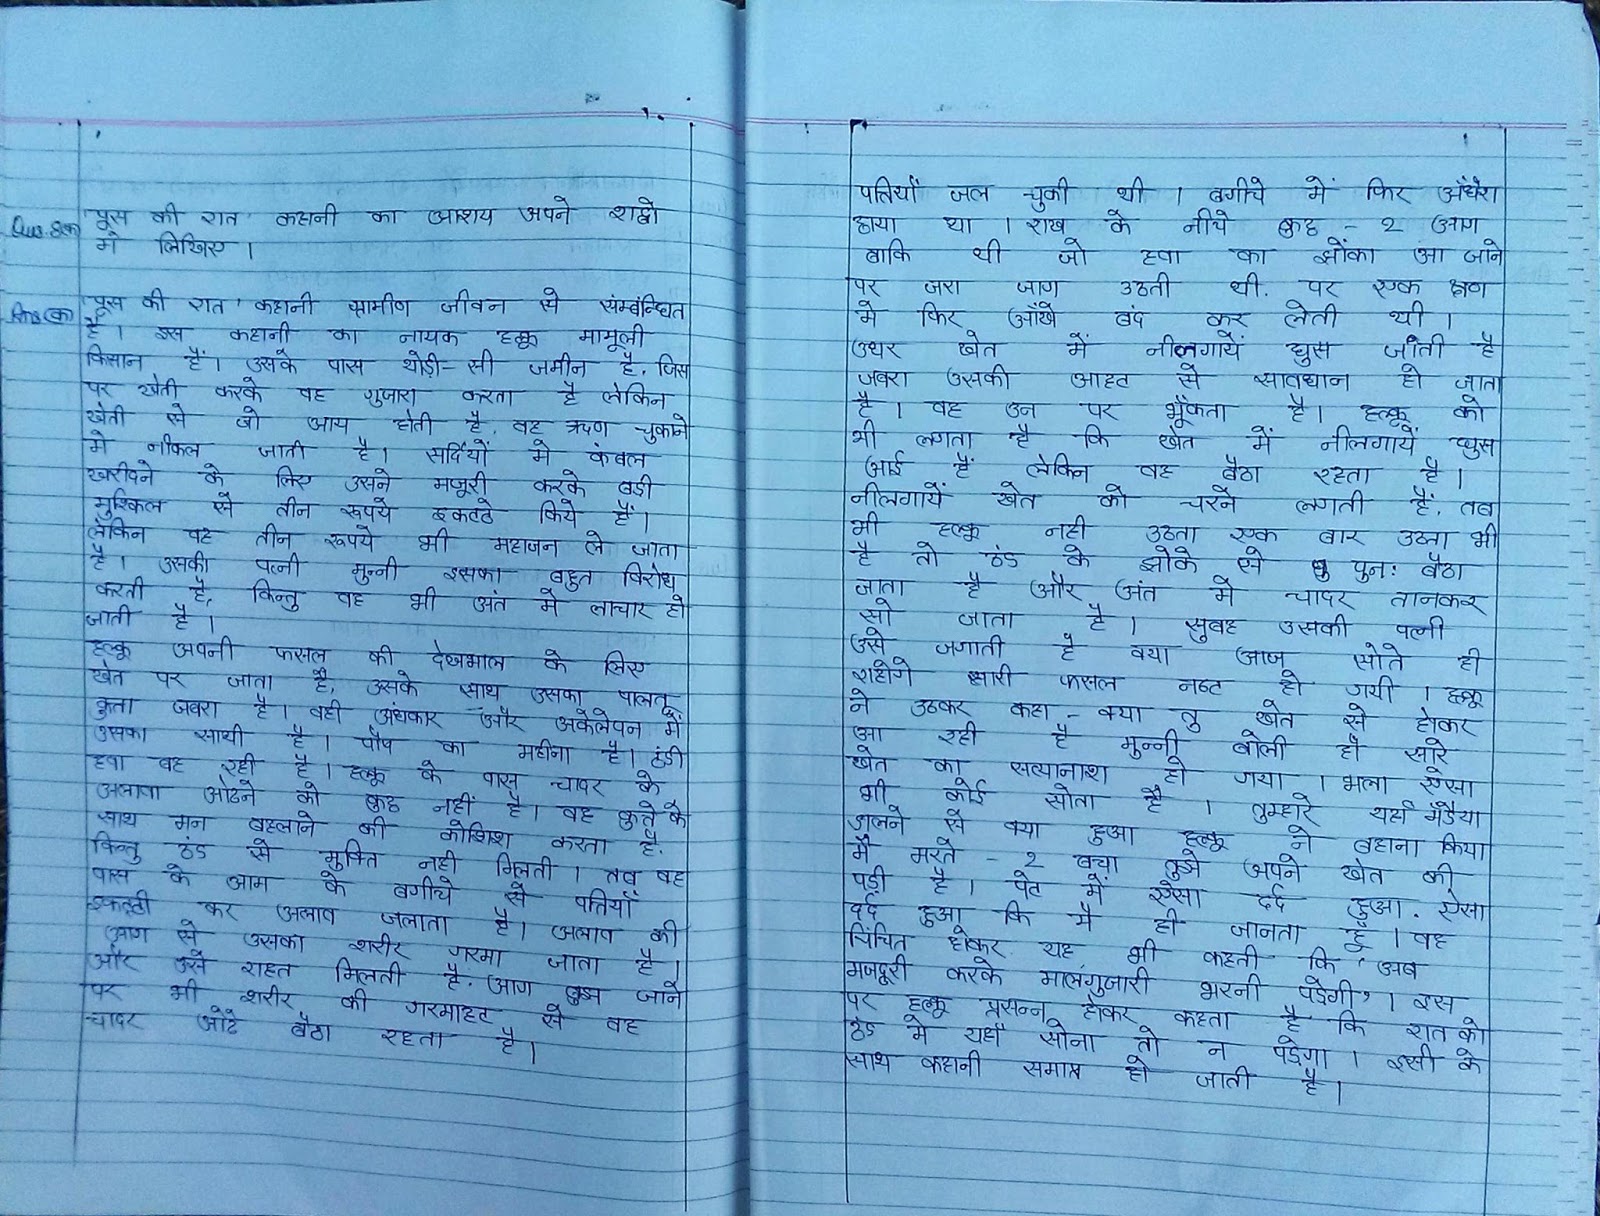 Que.8(क) 'पूस की रात' कहानी का आशय अपने शब्दो
में लिखिए।
Ans(क) 'पूस की रात' कहानी ग्रामीण जीवन से संम्बंन्धित
है। इस कहानी का नायक हल्कू मामूली
किसान हैं। उसके पास थोड़ी-सी जमीन है, जिस
पर खेती करके वह गुजारा करता है लेकिन
खेती से जो आय होती है, वह ऋण चुकाने
मे नीकल जाती है। सर्दियों मे कंबल
खरीदने के लिए उसने मजूरी करके बडी
मुश्किल से तीन रूपये इकटठे किये हैं।
लेकिन वह तीन रूपये भी महाजन ले जाता
है। उसकी पत्नी मुन्नी इसका बहुत विरोध
करती है, किन्तु वह भी अंत मे लाचार हो
जाती है।
हल्कू अपनी फसल की देखभाल के लिए
खेत पर जाता है, उसके साथ उसका पालतू
कुता जबरा है। वही अंधकार और अकेलेपन में
उसका साथी है। पौष का महीना है। ठंडी
हवा बह रही है। हल्कू के पास चादर के
अलावा ओढने को कुछ नहीं है। वह कुत्ते के
साथ मन बहलाने की कोशिश करता है,
किन्तु ठंड से मुक्ति नही मिलती। तब वह
पास के आम के बगीचे से पत्तियाँ
इकठ्ठी कर अलाव जलाता है। अलाव की
आग से उसका शरीर गरमा जाता है।
और उसे राहत मिलती है. आग बुझ जाने
पर भी शरीर की गरमाहट से वह
चादर ओढे बैठा रहता है।
पतियाँ जल चुकी थी। बगीचे में फिर अँधेरा
छाया था। राख के नीचे कुछ - २ आग
बाकि थी जो हवा का झोंका आ जाने
पर जरा जाग उठती थी. पर एक क्षण
मे फिर आँखे बंद कर लेती थी।
उधर खेत में नीलगायें घुस जाती है
जबरा उसकी आहट से सावधान हो जाता
है। वह उन पर भूँकता है। हल्कू को
भी लगता है कि खेत में नीलगायें घुस
आई हैं लेकिन वह बैठा रहता है।
नीलगायें खेत को चरने लगती हैं, तब
भी हल्कू नही उठता एक बार उठता भी
है तो ठंड के झोके से पुनः बैठा
जाता है और अंत मे चादर तानकर
सो जाता है। सुबह उसकी पत्नी
उसे जगाती है क्या आज सोते ही
राहोगे सारी फसल नष्ट हो गयी। हल्कू
ने उठकर कहा - क्या तु खेत से होकर
आ रही है मुन्नी बोली हाँ सारे
खेत का सत्यानाश हो गया। भला ऐसा
भी कोई सोता है। तुम्हारे यहाँ मँडैया
डालने से क्या हुआ हल्कू ने बहाना किया
मैं मरते - २ बचा तुझे अपने खेत की
पड़ी है। पेट में ऐसा दर्द हुआ. ऐसा
दर्द हुआ कि मै ही जानता हूँ। वह
चिंचित होकर यह भी कहती कि 'अब
मजदूरी करके मालगुजारी भरनी पडेगी'। इस
पर हल्कू प्रसन्न होकर कहता है कि रात को
ठंड मे यहाँ सोना तो न पडेगा। इसी के
साथ कहानी समाप्त हो जाती है।